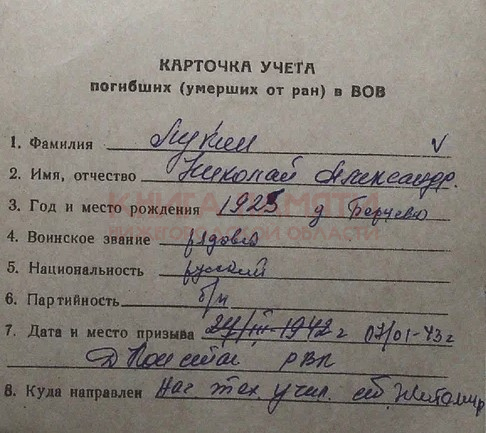 КАРТОЧКА УЧЕТА
погибших (умерших от ран) в ВОВ
1. Фамилия Лукин V
2. Имя, отчество Николай Александр.
КНИГА ПАМЯТИ
3. Год и место рождения 1925 д
НИЖЕГОРОДСКОЙ ОБЛАСТИ
4. Воинское звание рядовой
5. Национальность русский
6. Партийность б/п
7. Дата и место призыва 24/III-1942г 07/01-43г
РВК
8. Куда направлен тех. учил. ст. Житомир